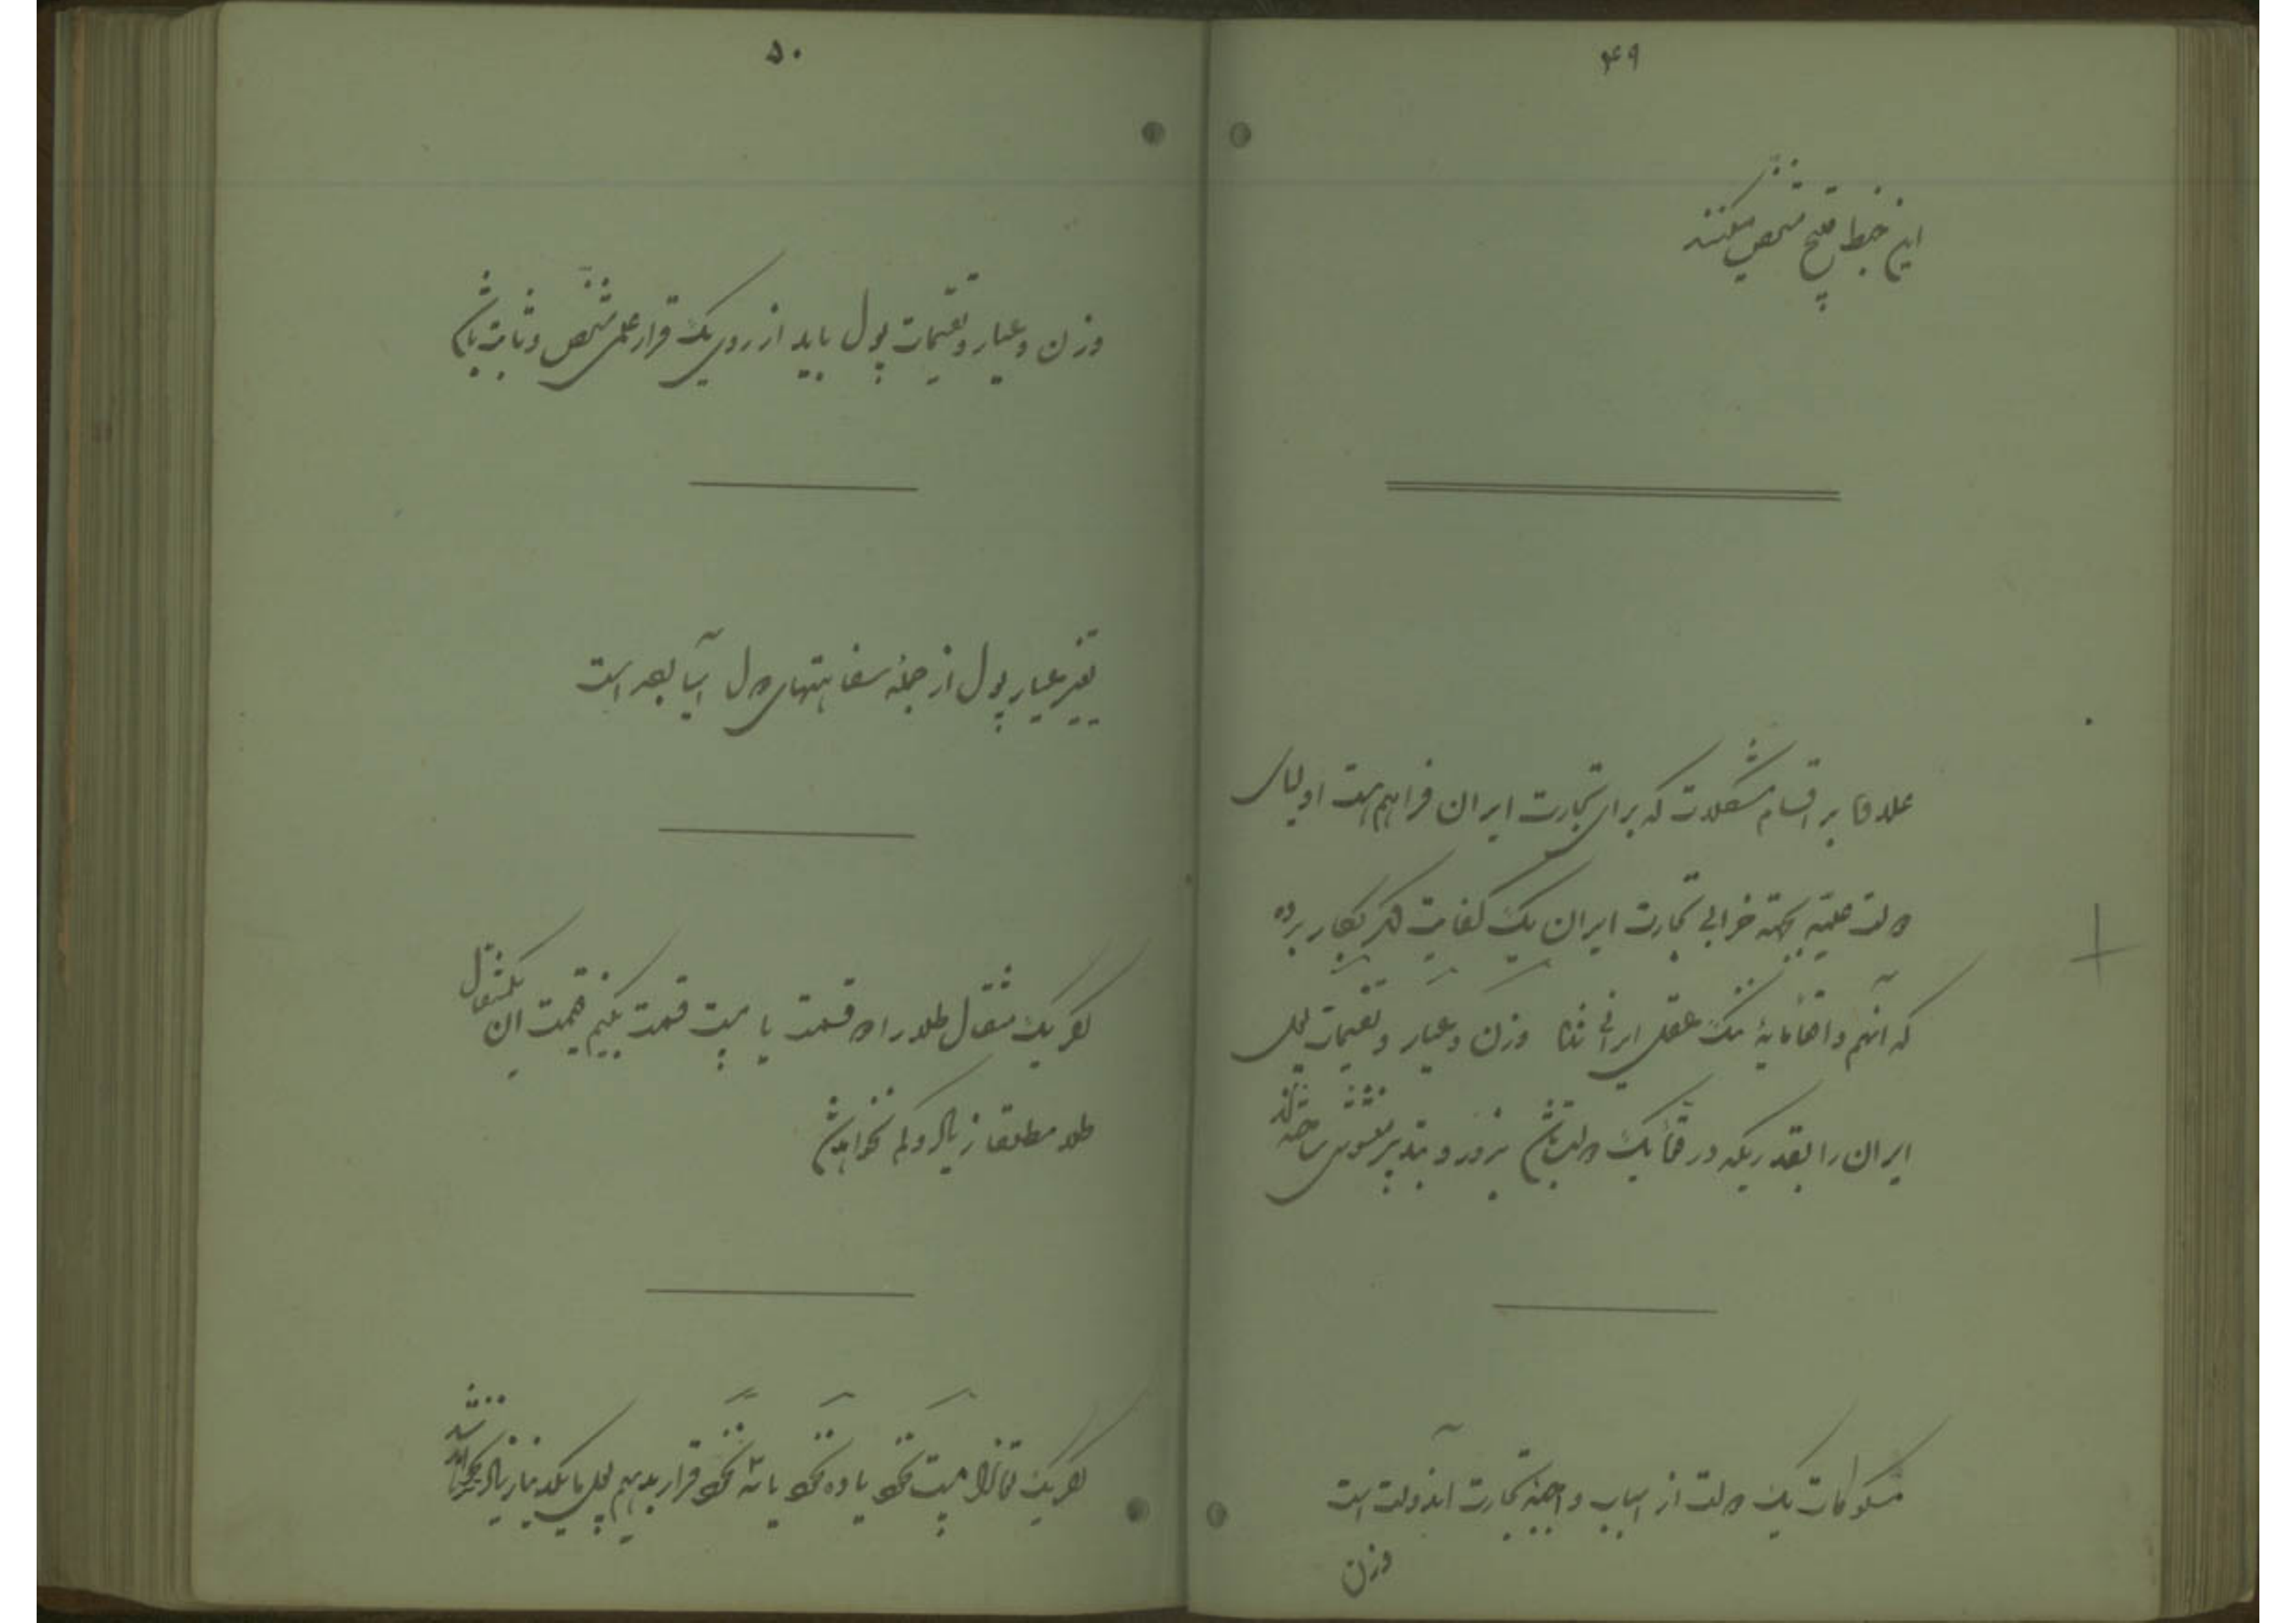 ۴۹
این خبط قبیح مشخص میکنند
علاوه بر اقسام مشکلات که برای تجارت ایران فراهم است اولیای
دولت علیه بجهته خرابی تجارت ایران یک کفایت دیگر بکار برده
که آنهم واقعا مایهٔ ننک عقل ایرانی شده وزن و عیار و تقسیمات پول
ایران را بقدریکه در قوهٔ یک دولت باشد بزور و تدبیر مغشوش ساخته‌اند
مسکوکات یک دولت از اسباب و اجهزهٔ تجارت آندولت است
وزن
۵۰
وزن و عیار و تقسیمات پول باید از روی یک قرار علمی مشخص و ثابت باشد
تغییر عیار پول از جملهٔ سفاهتهای دول آسیا بوده است
اکر یک مثقال طلا را ده قسمت یا بیست قسمت بکنیم قیمت ان یکمثقال
طلا مطلقا زیاد و کم نخواهد شد
اکر یک تومانرا بیست نخود یا ده نخود یا سه نخود قرار بدهیم پول ما یکدینار زیادتر نخواهد شد